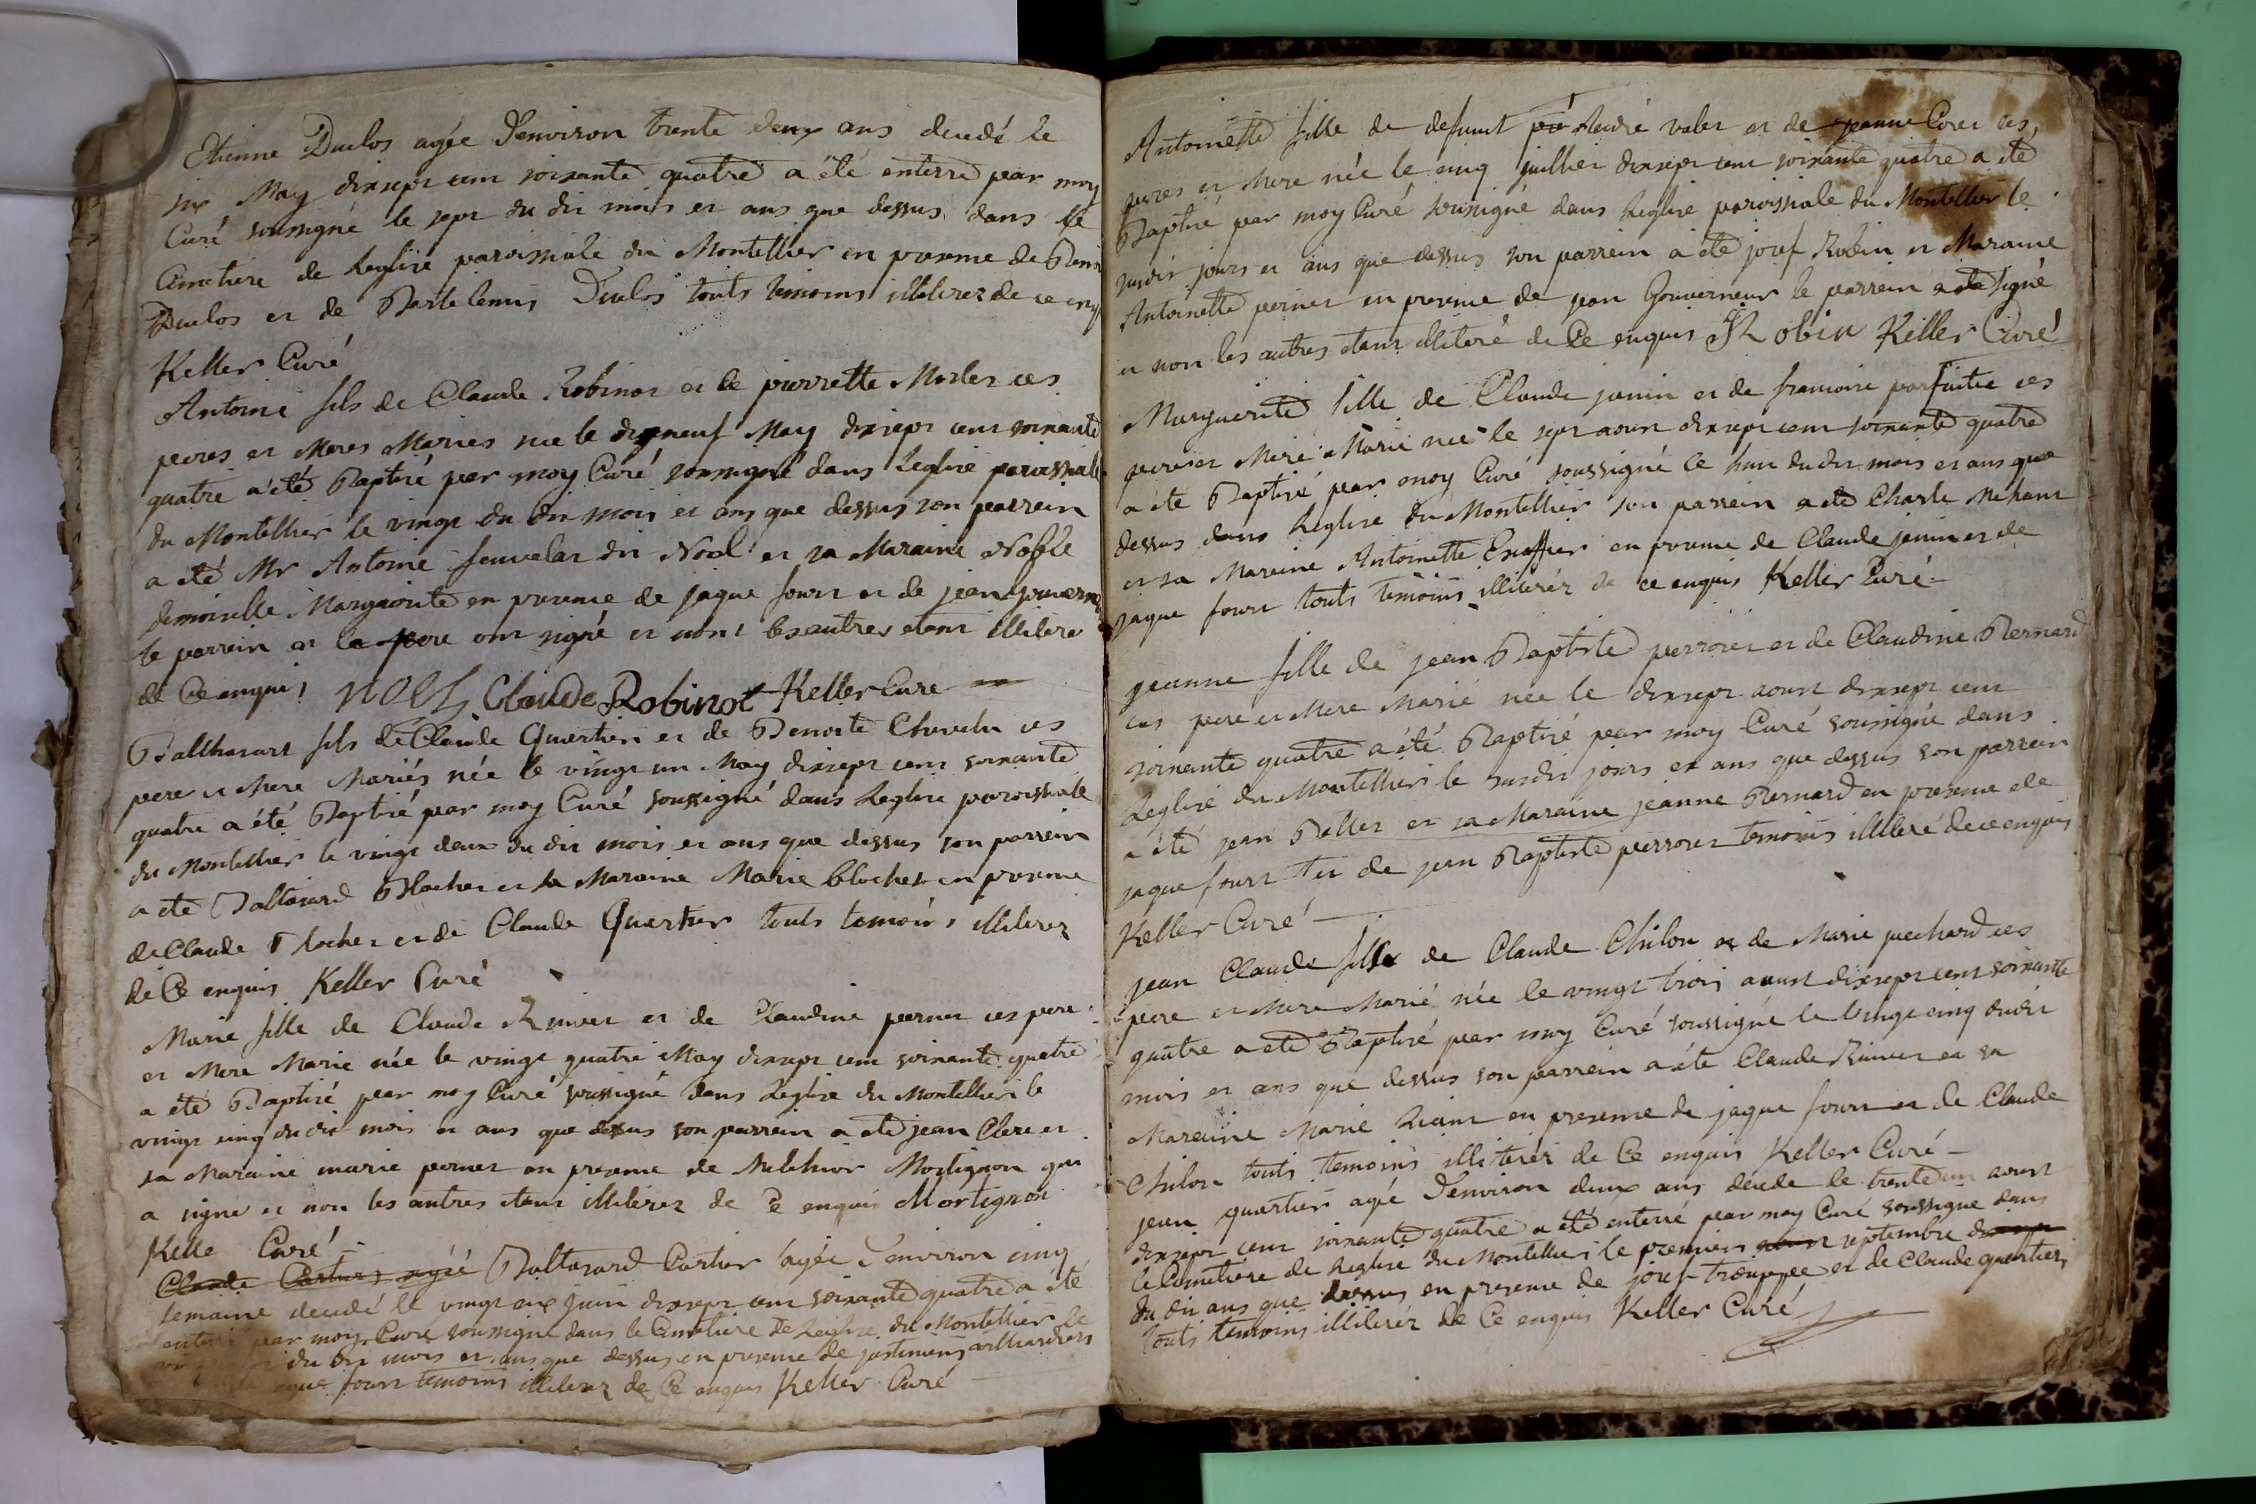 Etienne Duclos agée Denviron trente deux ans decedé le
six May dixsept cent soixante quatre a été enterré par moy
Curé soussigné le sept du dit mois et ans que dessus dans le
Cimetiere de Leglise paroissiale du Montellier en presence de
Duclos et de Bartelemis Duclos touts temoins illiterez de ce enq
Keller Curé
Antoine fils de Claude Robinot et de pierrette Morlet ces
peres et Meres Maries née le dixneuf May dixsept cent soixante
quatre a été Baptisé par moy Curé soussigné dans Leglise paroissiale
du Montellier le vingt du dit mois et ans que dessus son parrein
a été Mr Antoine fauvelar dit Noel et sa Maraine Noble
demoiselle Margueritte en presence de jaque fourt et de jean
le parrein et le pere ont signé et nont les autres etant illitere
de Ce enquis Noel Claude Robinot Keller Cure
Balthasart fils de Claude Quartier et de Benoite Chevelu ces
pere et Mere Mariés née le vingt un May dixsept cent soixante
quatre a été Baptisé par moy Curé soussigné dans Leglise paroissiale
du Montellier le vingt deux du dit mois et ans que dessus son parrein
a ete Baltasard Blochet et sa Maraine Marie blochet en presence
de Claude Blochet et de Claude Quartier touts temoins illiterez
de Ce enquis Keller Curé
Marie fille de Claude Rimet et de Claudine pernet ces pere
et Mere Marie née le vingt quatre May dixsept cent soixante quatre
a été Baptisé par moy Curé soussigné dans Leglise du Montellier le
vingt cinq du dit mois et ans que dessus son parrein a ete jean Clere et
sa Maraine marie pernet en presence de Melchior Mortignon qui
a signe et non les autres etant illiterez de Ce enquis Mortignon
Kelle Curé
Claude Cartier agée Baltasard Cartier agée Denviron cinq
semaine decedé le vingt six juin dixsept cent soixante quatre a été
enterré par moy Curé soussigne dans le Cimetiere de Leglise du Montellier le
du dit mois et ans que dessus en presence de
fourt temoins illiterez de Ce enquis Keller Curé
Antoinette fille de defunt pié André valet et de jeanne Coret ces
peres et Mere née le cinq juillet dixsept cent soixante quatre a été
Baptisé par moy Curé soussigné dans Leglise paroissiale du Montellier le
susdit jours et ans que dessus son parrein a éte josef Robin et Maraine
Antoinette pernet en presence de jean Gouverneur le parrein a ete signé
et non les autres etant illiteré de Ce enquis JRobin Keller Curé
Marguerite fille de Claude janin et de francoise parfaitte ces
peres et Mere Marie née le sept aoust dixsept cent soixante quatre
a éte Baptisé par moy Curé soussigné Ce huit du dit mois et ans que
dessus dans Leglise du Montellier son parrein a éte Charle Mehant
et sa Mareine Antoinette Escoffier en presence de Claude janin et de
jaque fourt touts temoins illiterez de ce enquis Keller Curé
jeanne fille de jean Baptiste perroset et de Claudine Bernard
ces pere et Mere Marié née le dixsept aoust dixsept cent
soixante quatre a été Baptisé par moy Curé soussigné dans
Leglise du Montellier le susdit jours et ans que dessus son parrein
a été jean Pellet et sa Maraine jeanne Bernard en presence de
jaque fourt et de jean Baptiste perroset temoins illiteré de ce enquis
Keller Curé
jean Claude fille de Claude Chilon et de Marie pechard ces
pere et Mere Marié née le vingt trois aoust dixsept cent soixante
quatre a été Baptisé par moy Curé soussigné le vingt cinq du dit
mois et ans que dessus son parrein a éte Claude Rimet et sa
Mareine Marie Liant en presence de jaque fourt et de Claude
Chilon touts temoins illiterez de Ce enquis Keller Curé
jean quartier agé Denviron deux ans decede le trente un aoust
dixsept cent soixante quatre a été enterré par moy Curé soussigne dans
Le Cimetiere de Leglise du Montellier le premier aoust septembre dixsept
du dit ans que dessus en presence de josef trouppée et de Claude quartier
touts temoins illiterez de Ce enquis Keller Curé